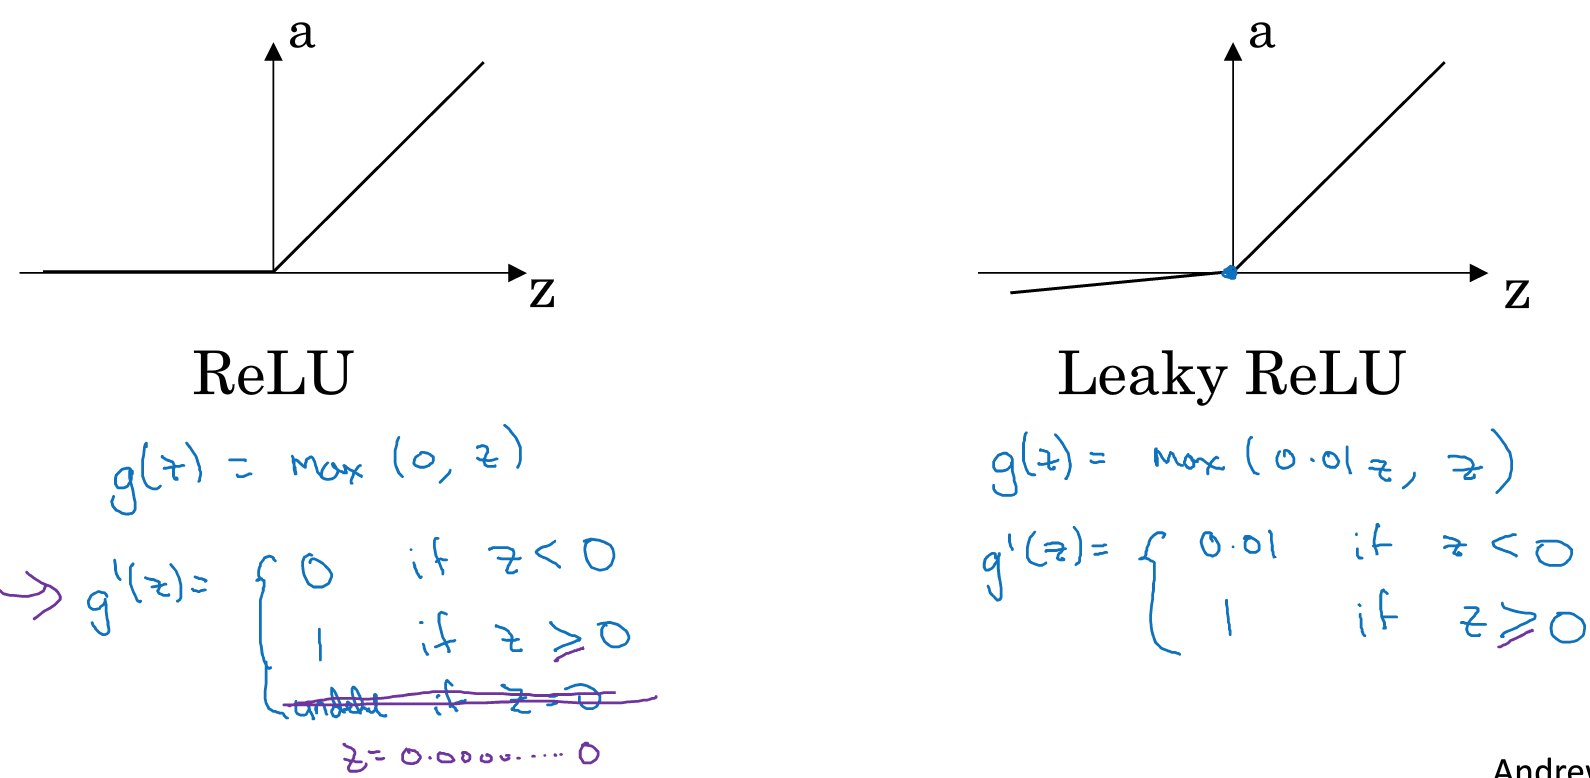 a
z
ReLU
g(z) = max (0, z)
g'(z) = { 0 if z < 0
1 if z ≥ 0
if z = 0
z = 0.0000......0
a
z
Leaky ReLU
g(z) = max (0.01z, z)
g'(z) = { 0.01 if z < 0
1 if z ≥ 0
Andrew